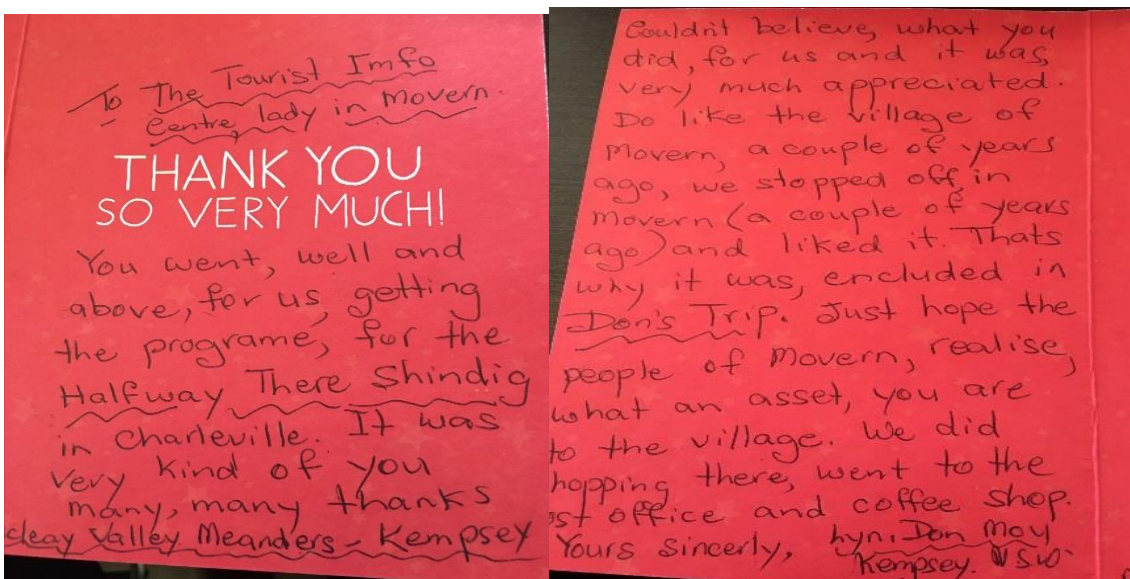 To The Tourist Imfo
Centre, lady in Movern.
THANK YOU
SO VERY MUCH!
You went, well and
above, for us, getting
the programe, for the
Halfway There Shindig
in Charleville. It was
very kind of you
many, many thanks
cleay Valley Meanders - Kempsey
Couldn't believe, what you
did, for us and it was,
very much appreciated.
Do like the village of
Movern, a couple of years
ago, we stopped off, in
Movern (a couple of years
ago) and liked it. Thats
why it was, encluded in
Don's Trip. Just hope the
people of Movern, realise,
what an asset, you are
to the village. We did
hopping there, went to the
st office and coffee shop.
Yours sincerely, Lyn, Don Moy
Kempsey. NSW.